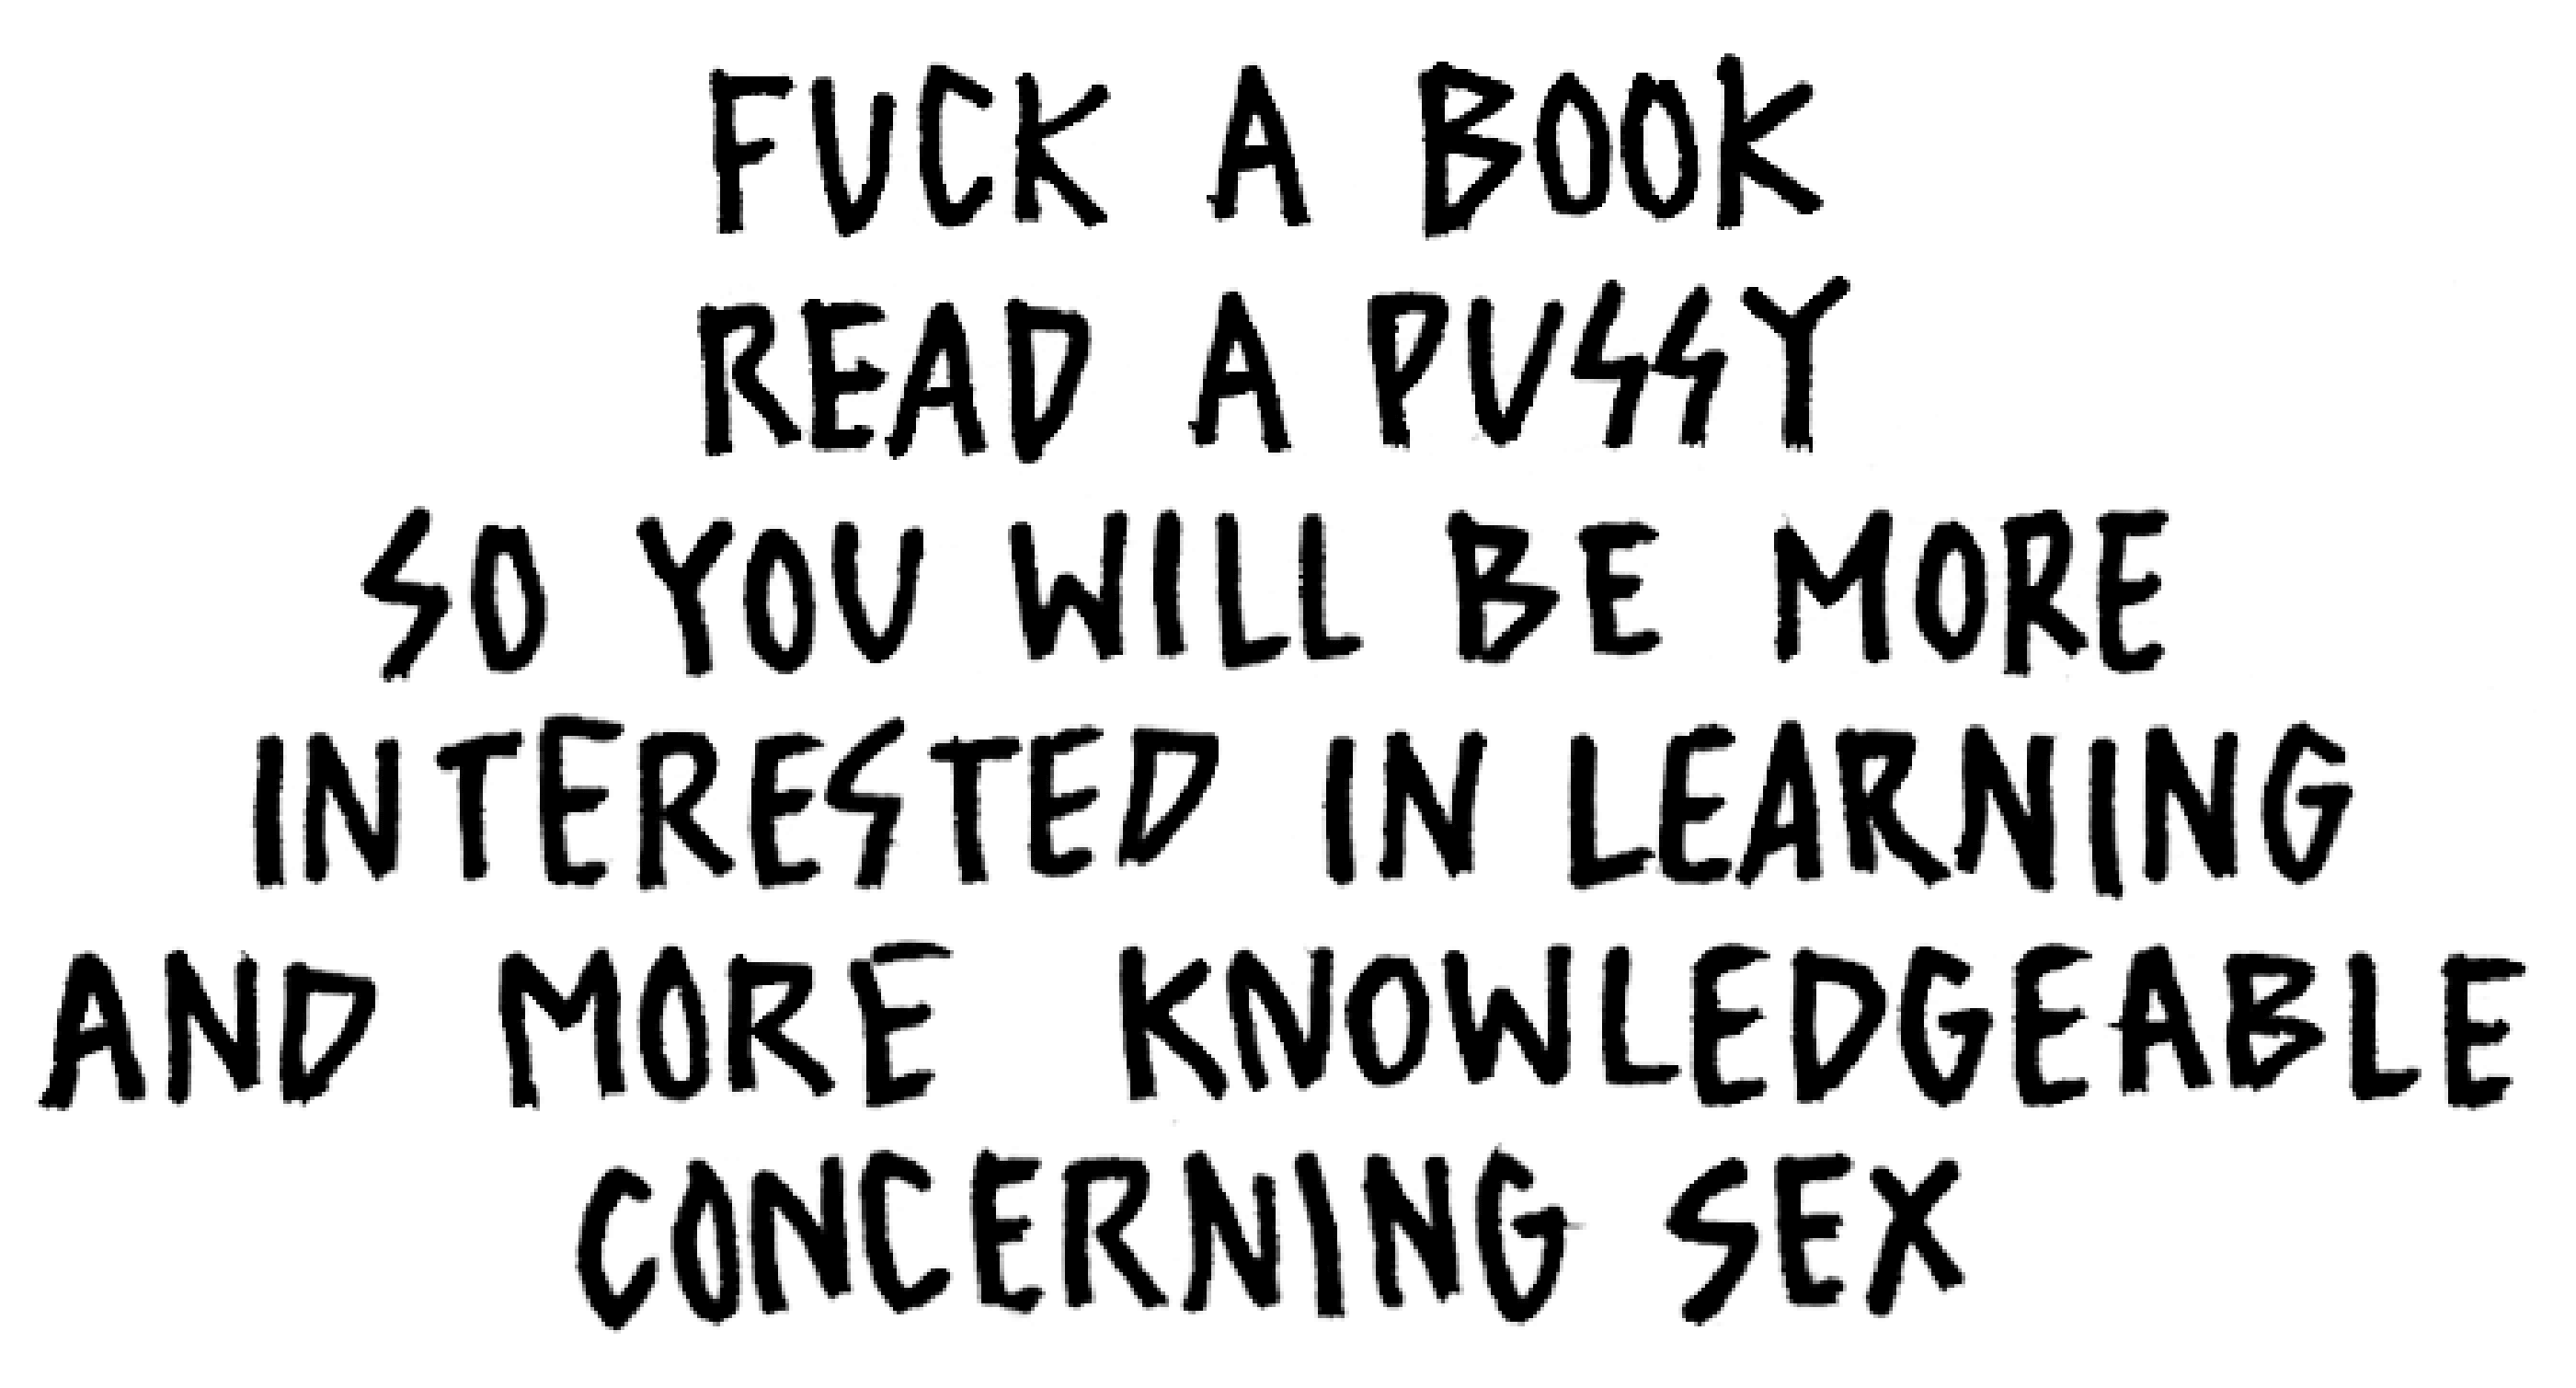 FUCK A BOOK
READ A PUSSY
SO YOU WILL BE MORE
INTERESTED IN LEARNING
AND MORE KNOWLEDGEABLE
CONCERNING SEX